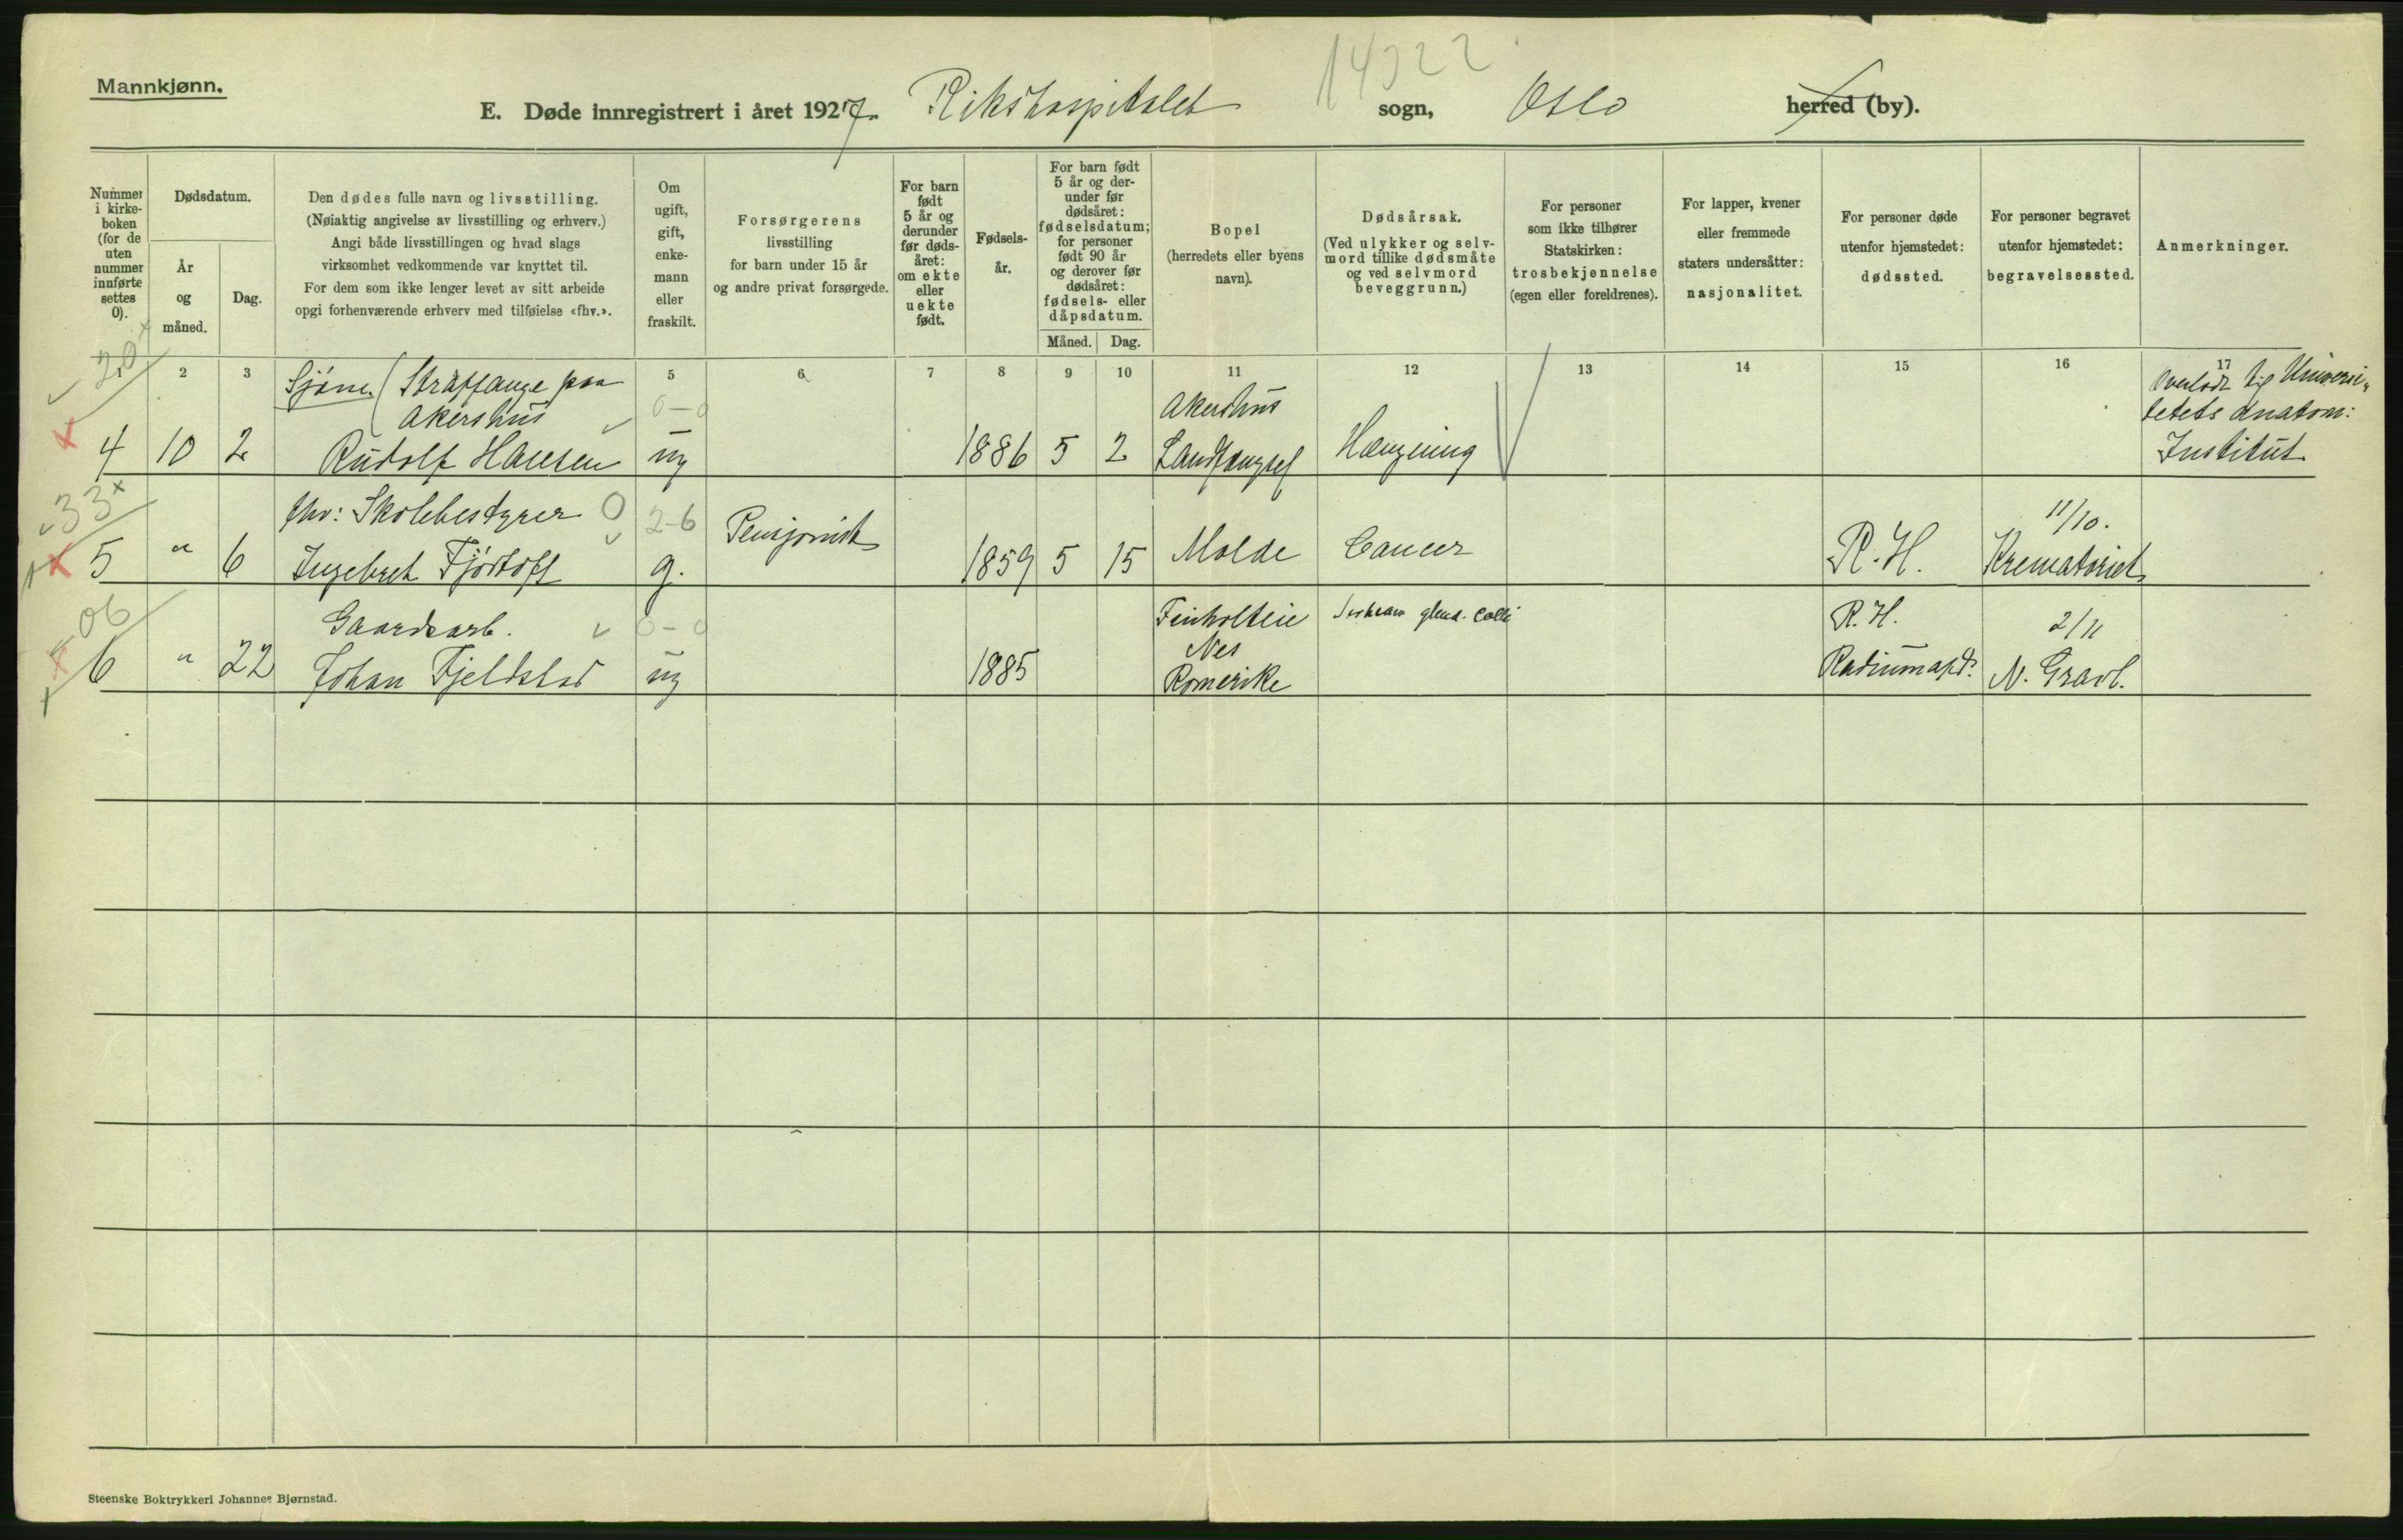 Mannkjønn.
14322
E. Døde innregistrert i året 1927. Rikshospitalet sogn, Oslo herred (by).
Nummer i kirke- boken (for de uten nummer innførte settes 0).
Dødsdatum.
År og måned.
Dag.
Den dødes fulle navn og livsstilling.
(Nøiaktig angivelse av livsstilling og erhverv.)
Angi både livsstillingen og hvad slags
virksomhet vedkommende var knyttet til.
For dem som ikke lenger levet av sitt arbeide
opgi forhenværende erhverv med tilføielse «fhv.».
Om ugift, gift, enke- mann eller fraskilt.
Forsørgerens
livsstilling
for barn under 15 år
og andre privat forsørgede.
For barn født 5 år og derunder før døds- året: om ekte eller uekte født.
Fødsels- år.
For barn født 5 år og der- under før dødsåret: fødselsdatum; for personer født 90 år og derover før dødsåret: fødsels- eller dåpsdatum.
Måned. Dag.
Bopel
(herredets eller byens
navn).
Dødsårsak.
(Ved ulykker og selv-
mord tillike dødsmåte
og ved selvmord
beveggrunn.)
For personer
som ikke tilhører
Statskirken:
trosbekjennelse
(egen eller foreldrenes).
For lapper, kvener
eller fremmede
staters undersåtter:
nasjonalitet.
For personer døde
utenfor hjemstedet:
dødssted.
For personer begravet
utenfor hjemstedet:
begravelsessted.
Anmerkninger.
2 3 5 6 7 8 9 10 11 12 13 14 15 16 17
20
Sjøm. (Straffange paa
Akershus
0-0
Akershus
Overladt til Universi-
tetets Anatom:
4 10 2 Rudolf Hansen ug 1886 5 2 Landfængsel Hængning Institut
33
fhv: Skolebestyrer 0 2-6 Pensjonist 11/10.
5 " 6 Ingebret Fjørtoft g. 1859 5 15 Molde Cancer R.H. Krematoriet
06
Gaardsarb. 0-0 Finholteie glend. colli R.H. 2/11
Nes
6 " 22 Johan Fjeldstad ug 1885 Romerike Radiumavd. N. Gravl.
Steenske Boktrykkeri Johannes Bjørnstad.